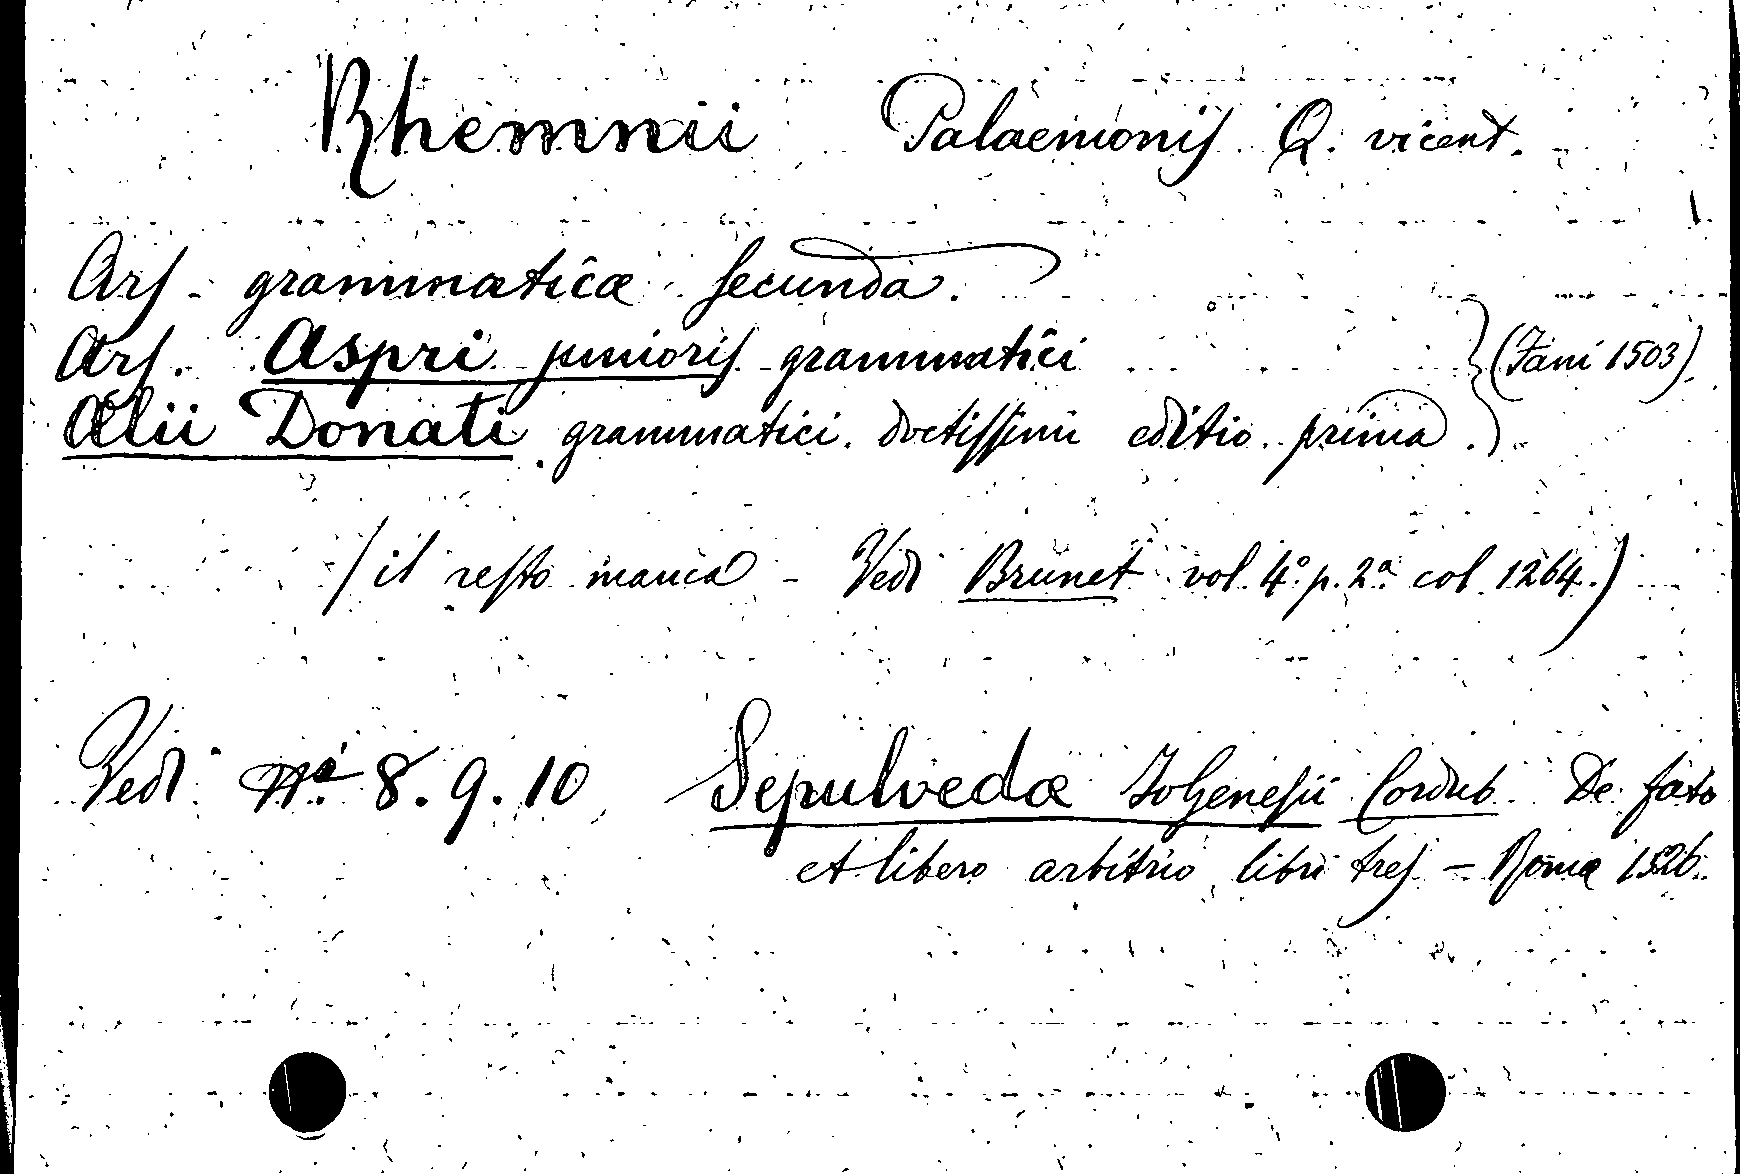 Rhemnii Palaemonis Q. vicent.
1.
Ars - grammatica secunda.
Ars. Aspri junioris grammatici
(Fani 1503)
Ælii Donati grammatici doctissimi editio prima.
(il resto manca - Vedi Brunet vol. 4º p. 2ª col. 1264.)
Vedi Nº 8. 9. 10 Sepulveda Io Genesii Cordub. De fato
et libero arbitrio libri tres - Roma 1526.